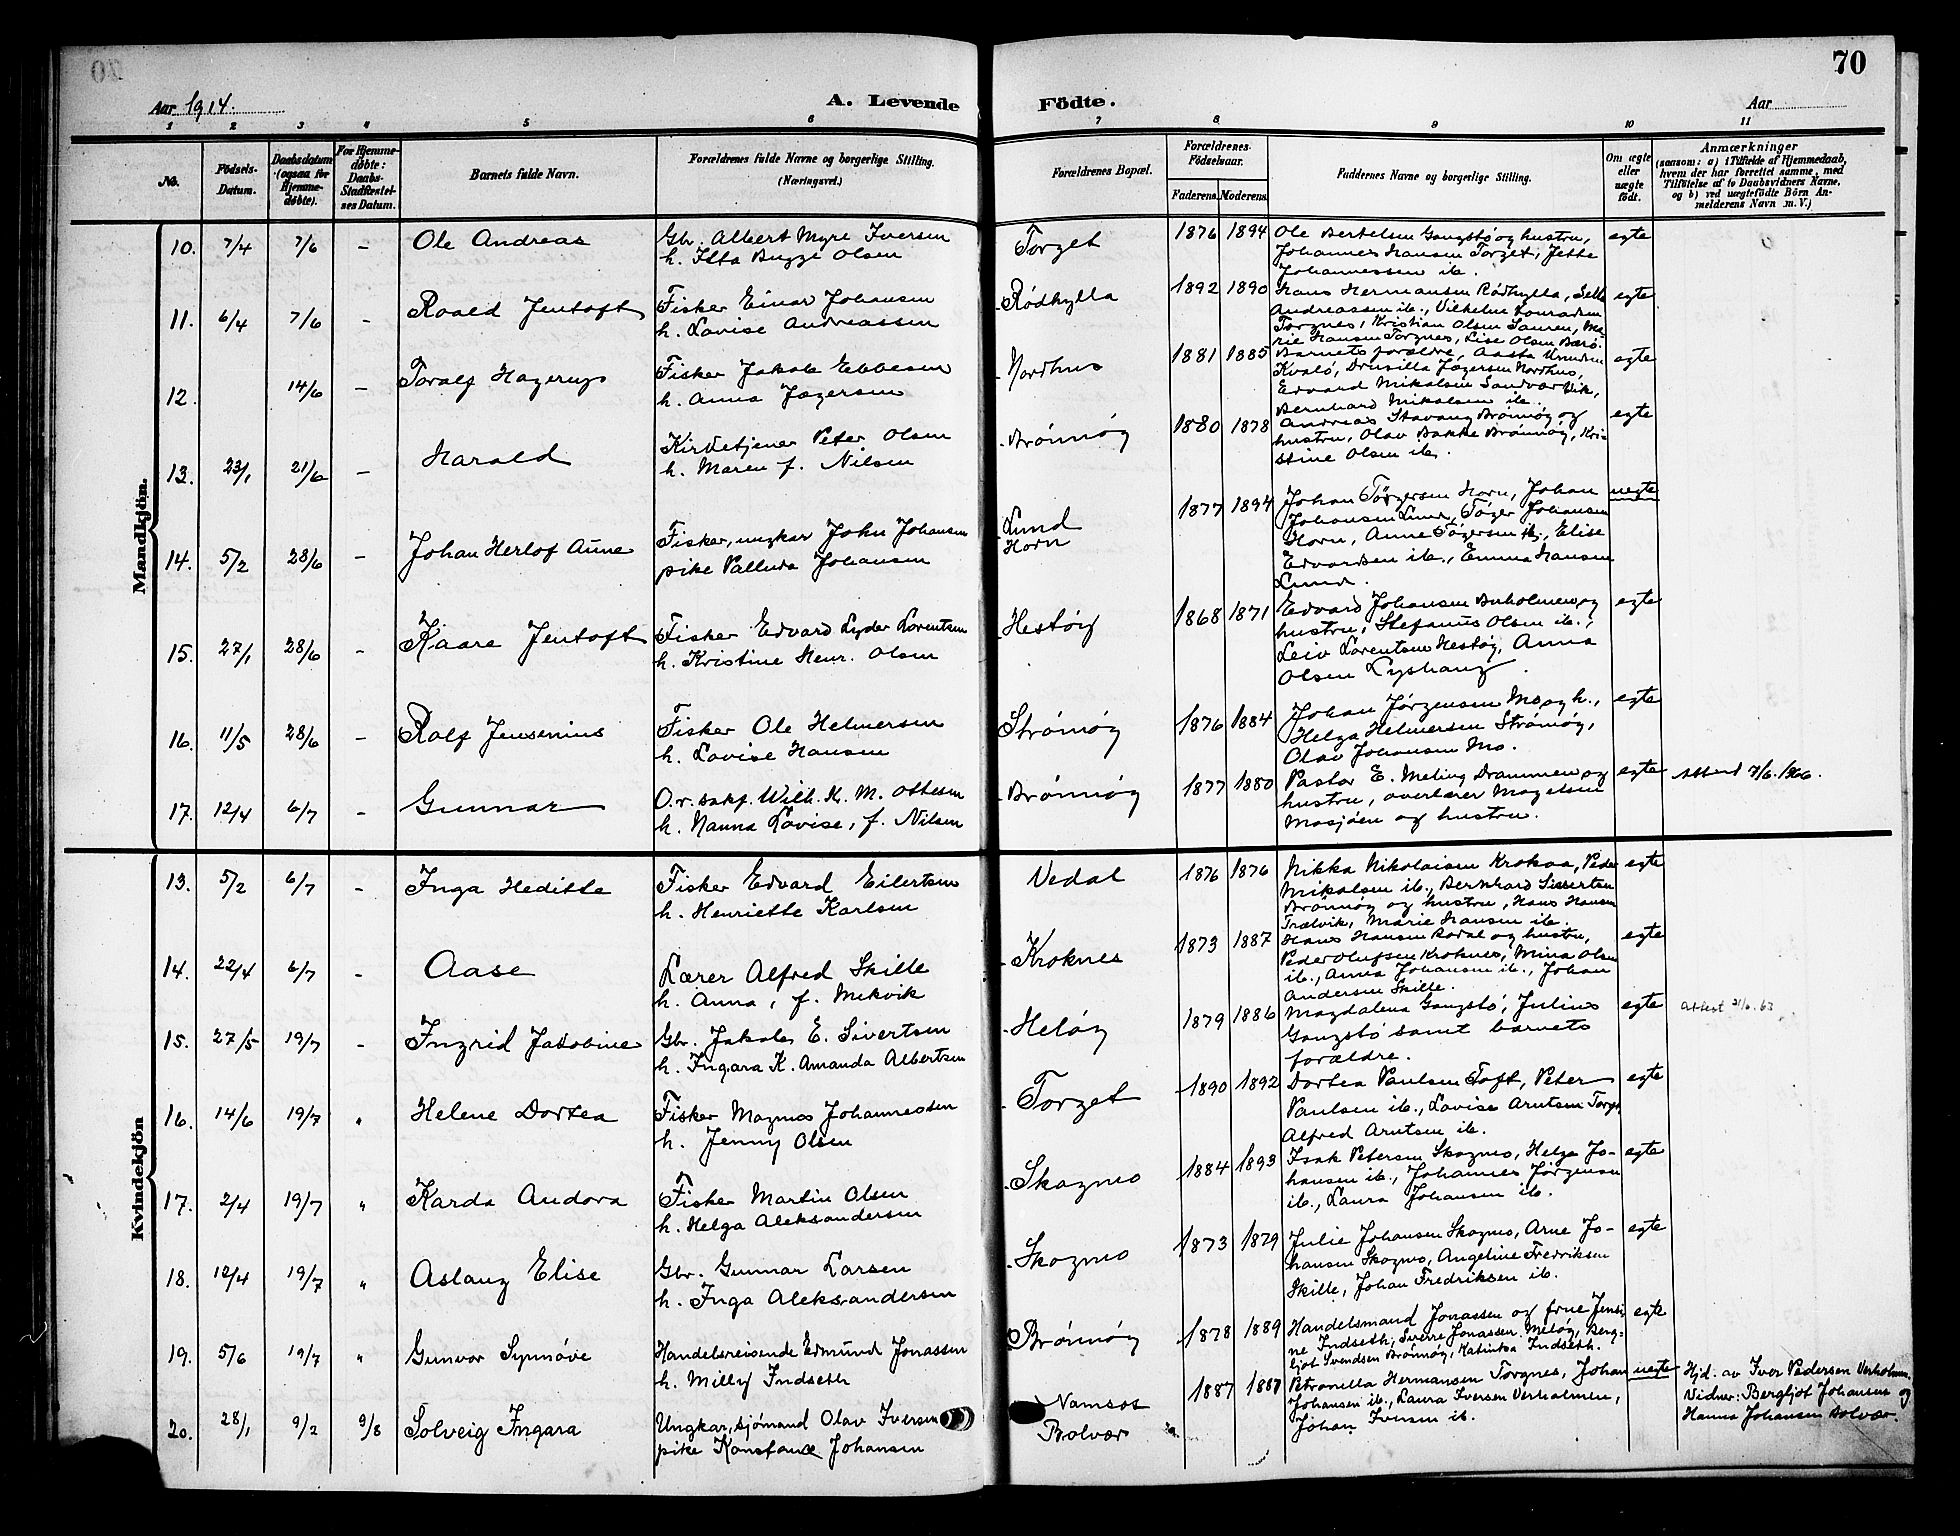 70
Aar 1914.
A. Levende Födte.
Aar
1 2 3 4 5 6 7 8 9 10 11
No.
Födsels-Datum.
Daabsdatum (ogsaa for Hjemme-döbte).
For Hjemme-döbte: Daabs-Stadfæstel-ses Datum.
Barnets fulde Navn.
Forældrenes fulde Navne og borgerlige Stilling. (Næringsvei.)
Forældrenes Bopæl.
Forældrenes Födselsaar.
Faderens. Moderens.
Faddernes Navne og borgerlige Stilling.
Om ægte eller uægte födt.
Anmærkninger
(saasom: a) i Tilfælde af Hjemmedaab,
hvem der har forrettet samme, med
Tilföielse af to Daabsvidners Navne,
og b) ved uægtefödte Börn An-
melderens Navn m. V.)
Mandkjön.
10. 7/4 7/6 - Ole Andreas
Gbr. Albert Myre Iversen
h. Ilta Bugge Olsen
Torget 1876 1894
Ole Bertelsen Gangstö og hustru,
Johannes Hansen Torget, Jette
Johannessen ib.
egte
11. 6/4 7/6 - Roald Jentoft
Fisker Einar Johansen
h. Lovise Andreassen
Rödhylla 1892 1890
Hans Hermansen Rödhylla,
Andreassen ib., Vilhelm
Torgnes, Kristian Olsen Sauren, Ma-
rie Hansen Torgnes, Lise Olsen
egte
12. 14/6 - Toralf Hagerup
Fisker Jakob Ebbesen
h. Anna Jægersen
Nordhus 1881 1885
Barnets forældre, Aasta
Kvalö, Drusilla Jægersen Nordhus,
Edvard Mikalsen Sandvær Vik,
Bernhard Mikalsen ib.
egte
13. 23/1 21/6 - Harald
Kirketjener Peter Olsen
h. Maren f. Nilsen
Brönnöy 1880 1878
Andreas Stavang Brönnöy og
hustru, Olav Bakke Brönnöy, Kri-
stine Olsen ib.
egte
14. 5/2 28/6 - Johan Herlof Aune
Fisker, ungkar John Johansen
pike Palluda Johansen
Lund
Horn
1877 1894
Johan Törgersen Horn, Johan
Johansen Lund, Töger Johansen
Horn, Anne Tögersen ib., Elise
Edvardsen ib., Emma Hansen
Lund.
uegte
15. 27/1 28/6 - Kaare Jentoft
Fisker Edvard Lyder Lorentsen
h. Kristine Henr. Olsen
Hestöy 1868 1871
Edvard Johansen Buholmen og
hustru, Stefanus Olsen ib.,
Leiv Lorentsen Hestöy, Anna
Olsen Lyshaug.
egte
16. 11/5 28/6 - Rolf Jensenius
Fisker Ole Helmersen
h. Lovise Hansen
Strömöy 1876 1884
Johan Jörgensen Mo og h.,
Helga Helmersen Strömöy,
Olav Johansen Mo.
egte
17. 12/4 6/7 - Gunnar
O.r.sakf. Wilh. K. M. Ottesen
h. Nanna Lovise, f. Nilsen
Brönnöy 1877 1880
Pastor E. Meling Drammen og
hustru, overlærer Magelsen
Mosjöen og hustru.
egte
Attest 7/6. 1966.
Kvindekjön
13. 5/2 6/7 - Inga Heditte
Fisker Edvard Eilertsen
h. Henriette Karlsen
Vedal 1876 1876
Nikka Nikolaisen Krokaa, Peder
Mikalsen ib., Bernhard Sivertsen
Brönnöy og hustru, Hans Hansen
Trælvik, Marie Hansen ib.
egte
14. 22/4 6/7 - Aase
Lærer Alfred Skille
h. Anna, f. Mekvik
Kroknes 1873 1887
Hans Hansen Rodal og hustru,
Peder Olufsen Kroknes, Mina Olsen
ib., Anna Johansen ib., Johan
Andersen Skille.
egte
15. 27/5 19/7 - Ingrid Jakobine
Gbr. Jakob E. Sivertsen
h. Ingara K. Amanda Albertsen
Helöy 1879 1886
Magdalena Gangstö, Julius
Gangstö samt barnets
forældre.
egte
Attest 21/6. 63
16. 14/6 19/7 " Helene Dortea
Fisker Magnus Johannessen
h. Jenny Olsen
Torget 1890 1892
Dortea Paulsen Toft, Peter
Paulsen ib., Lovise Arntsen Torget
Alfred Arntsen ib.
egte
17. 2/4 19/7 " Karda Andora
Fisker Martin Olsen
h. Helga Aleksandersen
Skogmo 1884 1893
Isak Petersen Skogmo, Helga Jo-
hansen ib., Johannes Jörgensen
ib., Laura Johansen ib.
egte
18. 12/4 19/7 " Aslaug Elise
Gbr. Gunnar Larsen
h. Inga Aleksandersen
Skogmo 1873 1879
Julie Johansen Skogmo, Arne Jo-
hansen Skogmo, Angeline Fredriksen
Skille, Johan Fredriksen ib.
egte
19. 5/6 19/7 " Gunvor Synnöve
Handelsreisende Edmund Jonassen
h. Milly Indseth
Brönnöy 1878 1889
Handelsmand Jonassen og frue, Jensi-
ne Indseth, Sverre Jonassen Melöy, Berg-
ljot Svendsen Brönnöy, Katinka Indseth.
egte
20. 28/1 9/2 9/8 Solveig Ingara
Ungkar, sjömand Olav Iversen
pike Konstance Johansen
Namsos
Bolvær
1887 1887
Petronella Hermansen Torgnes, Johan
Johansen ib., Laura Iversen Verholmen,
Johan Iversen ib.
uegte
Hjd. av Iver Pedersen Verholmen.
Vidner: Bergljot Johansen og
Hanna Johansen Bolvær.